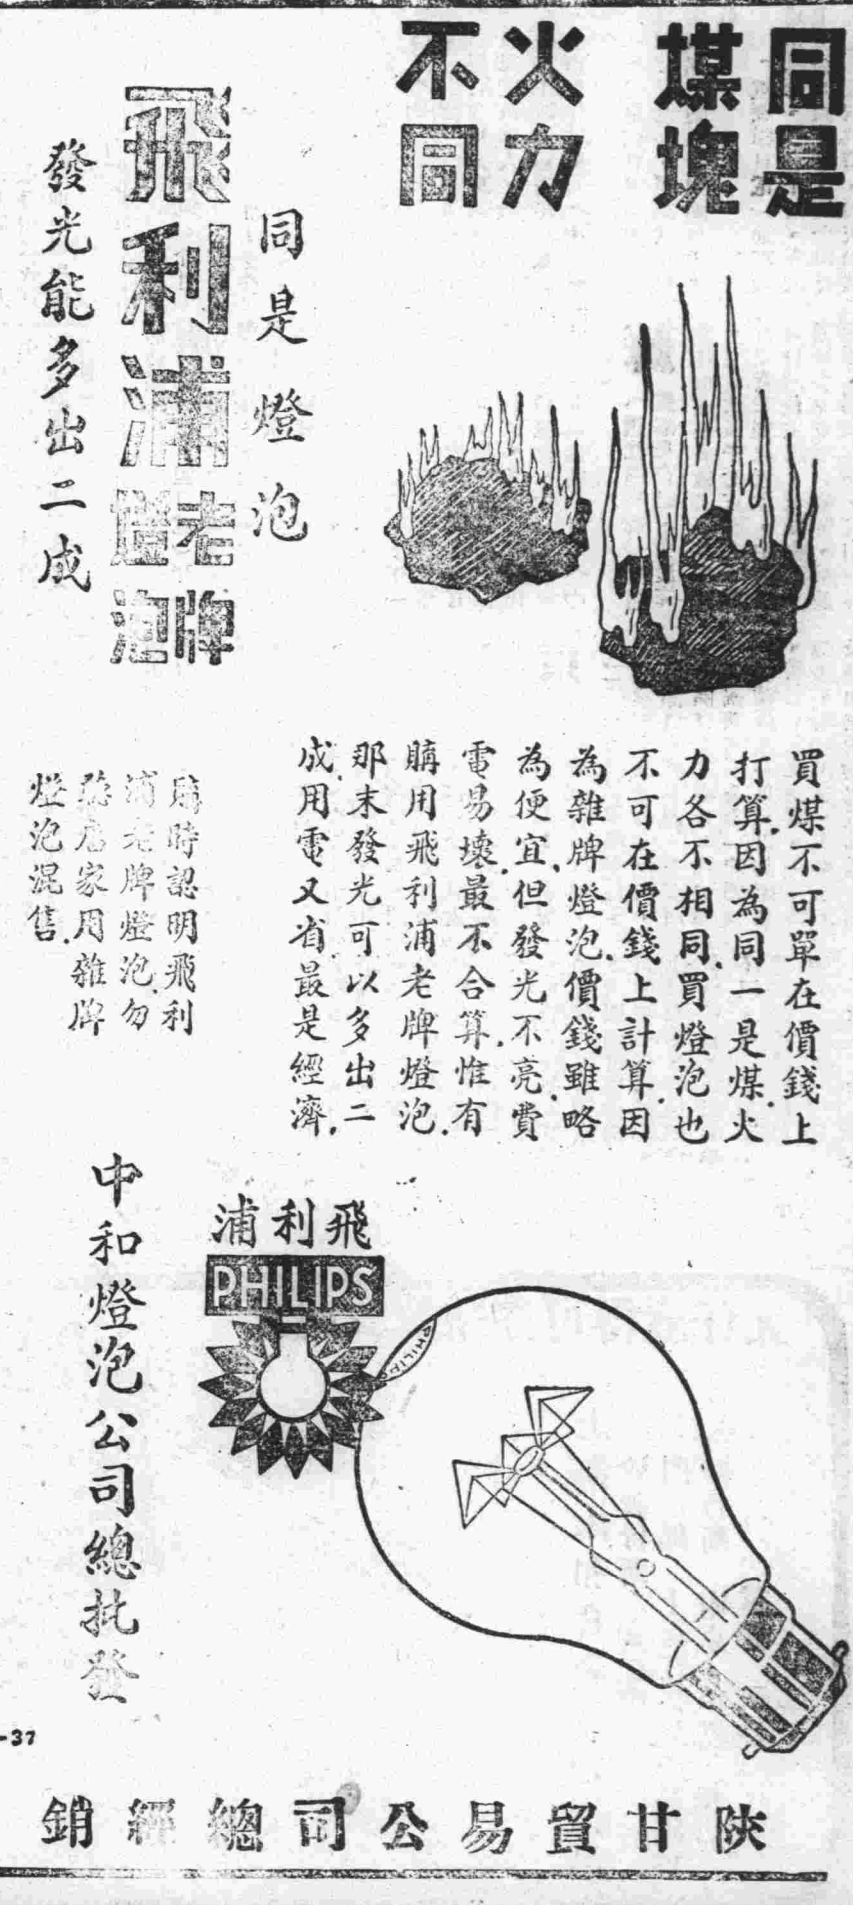 同是
煤塊
火力
不同
同是燈泡
飛利浦
老牌
燈泡
發光能多出二成
買煤不可單在價錢上
打算.因為同一是煤.火
力各不相同.買燈泡也
不可在價錢上計算.因
為雜牌燈泡.價錢雖略
為便宜.但發光不亮.費
電易壞.最不合算.惟有
購用飛利浦老牌燈泡.
那末發光可以多出二
成.用電又省.最是經濟.
購時認明飛利
浦老牌燈泡.勿
聽店家用雜牌
燈泡混售.
飛利浦
PHILIPS
PHILIPS
中和燈泡公司總批發
-37
陝甘貿易公司總經銷